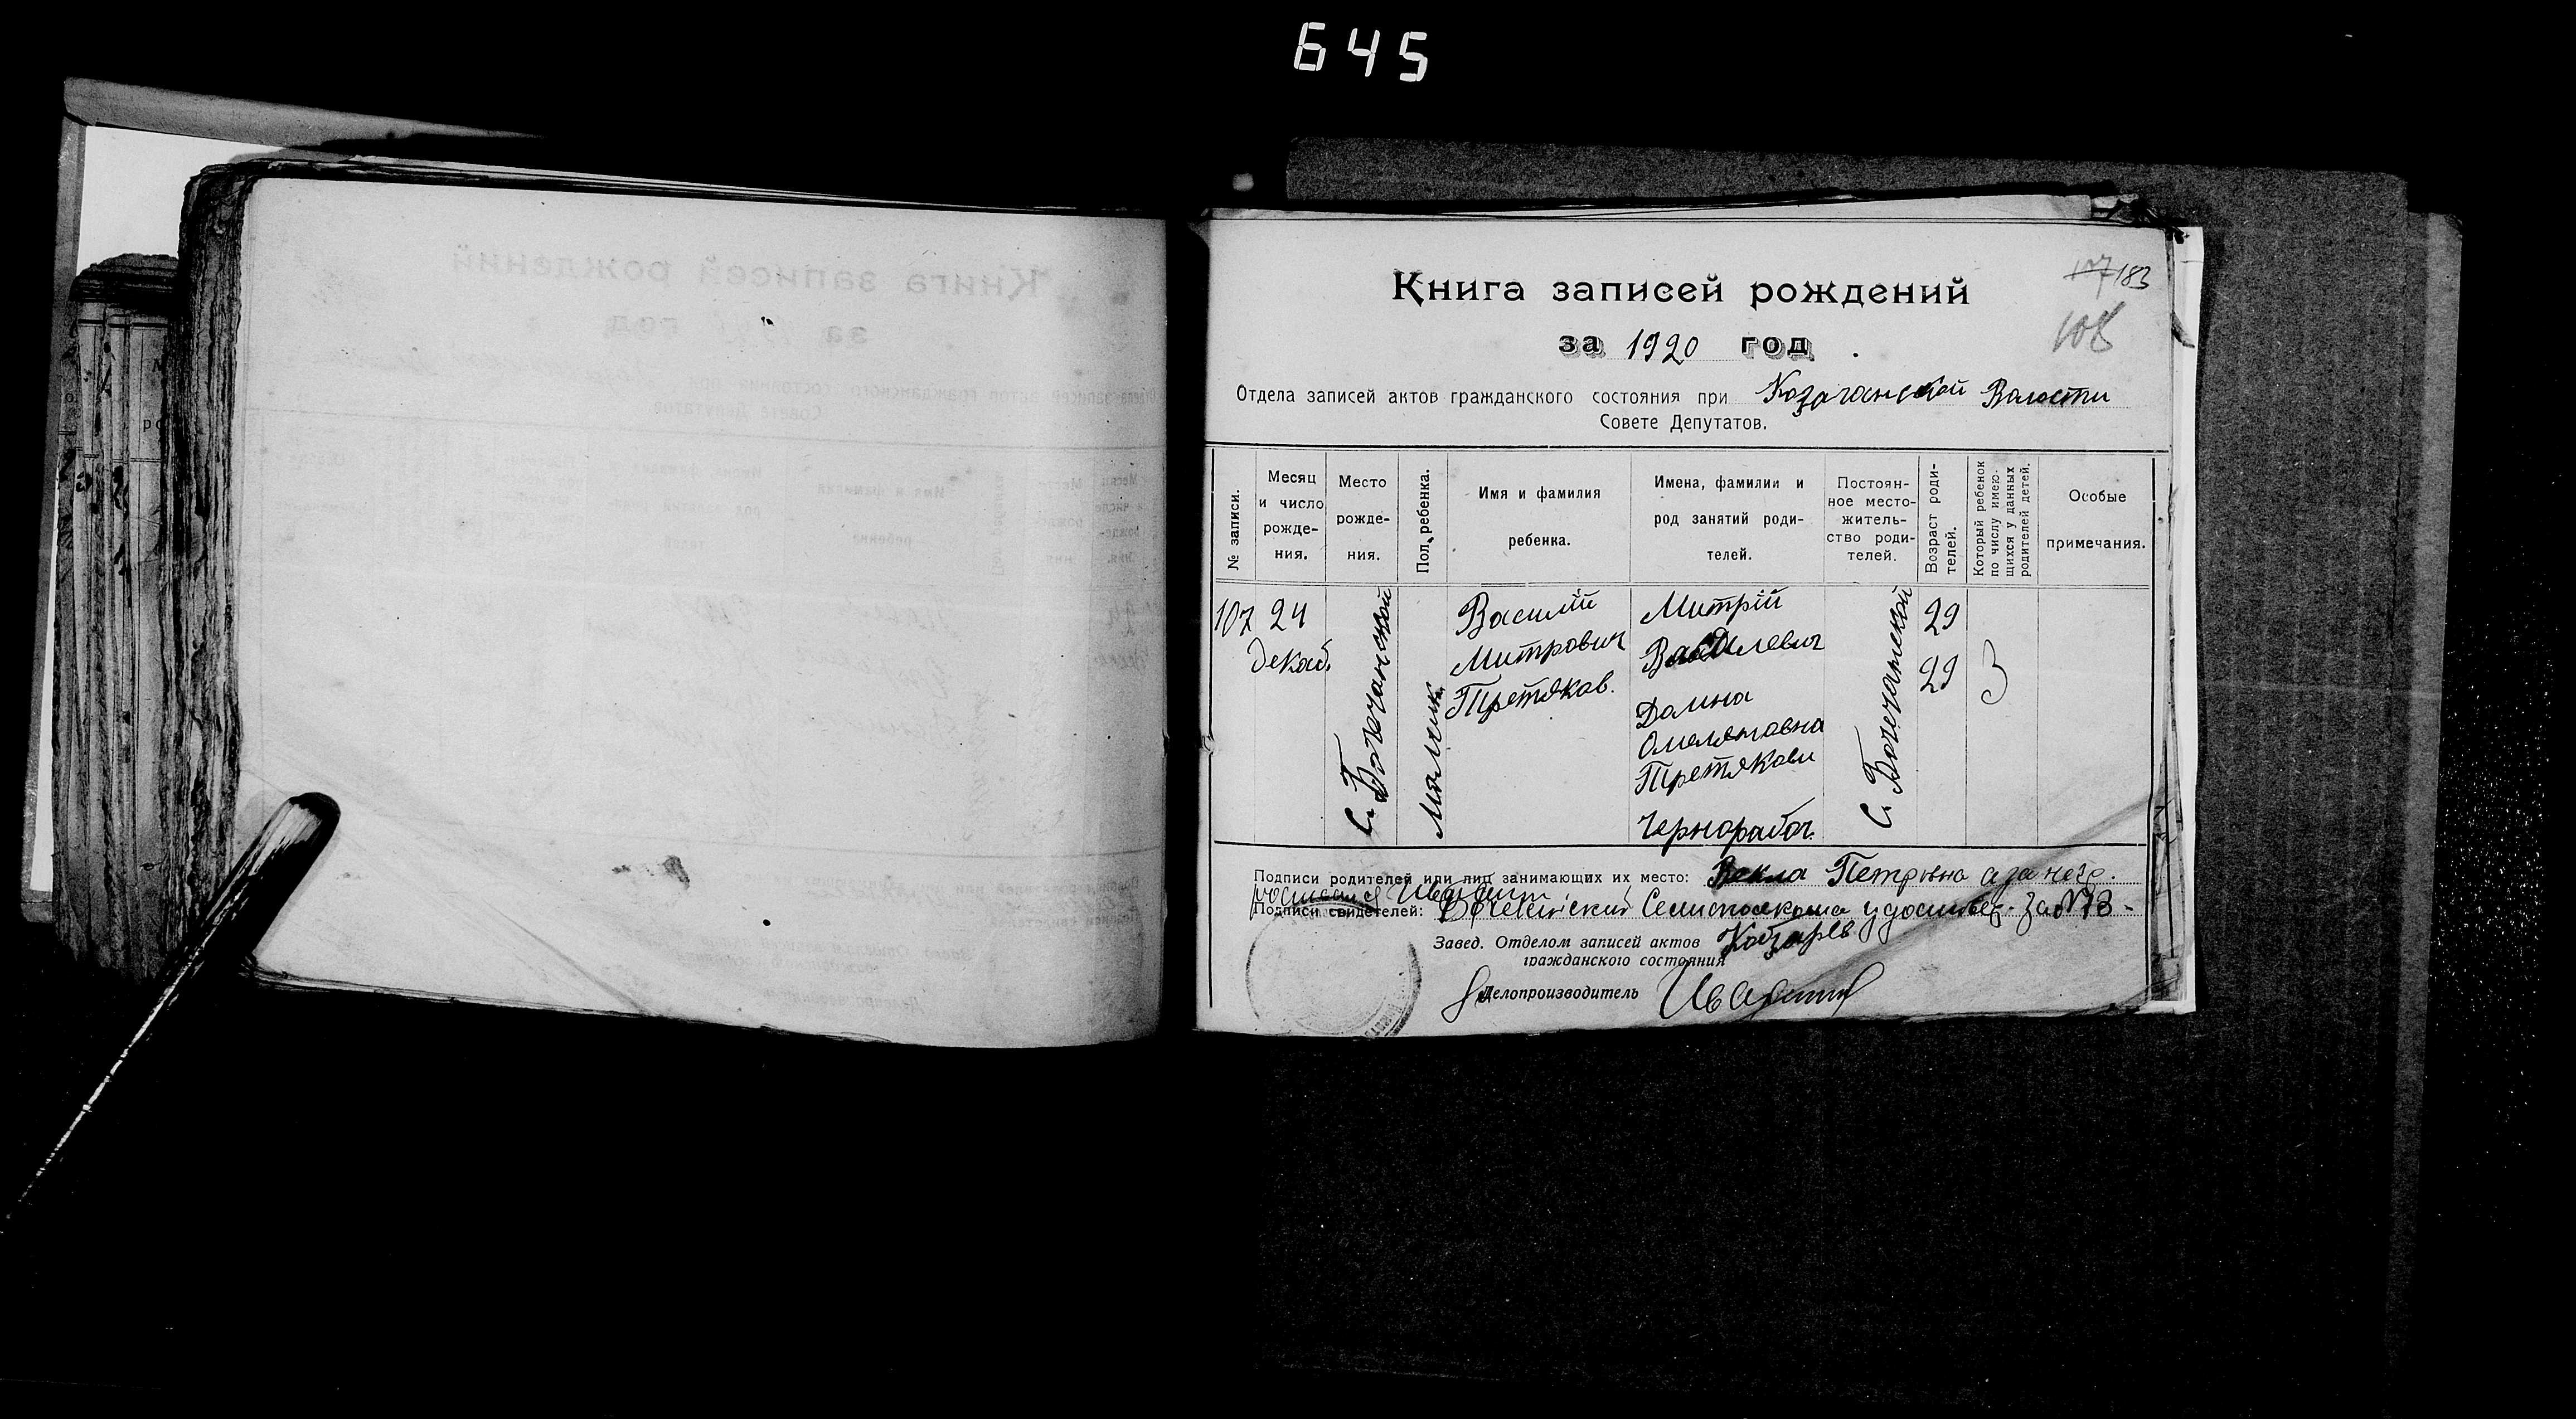 645
Книга записей рождений
за 1920 год
107 183
108
Отдела записей актов гражданского состояния при Козачанской Валасти
Совете Депутатов.
№ записи.
Месяц и число рожде- ния.
Место рожде- ния.
Пол ребенка.
Имя и фамилия ребенка.
Имена, фамилии и род занятий роди- телей.
Постоян- ное место- житель- ство роди- телей.
Возраст роди- телей.
Который ребенок по числу имею- щихся у данных родителей детей.
Особые примечания.
107
24
декаб.
с. Богочанской
Мялчик
Василий
Митрович
Третяков.
Митрій
Василевич
Домна
Омеляновна
Третякови
Чернорабоч.
с. Богочанской
29
29
3
Подписи родителей или лиц занимающих их место: Векла Петровна а за негр.
Подписи свидетелей: Семисполкома удостовер. за №73 -
Завед. Отделом записей актов
гражданского состояния
Делопроизводитель